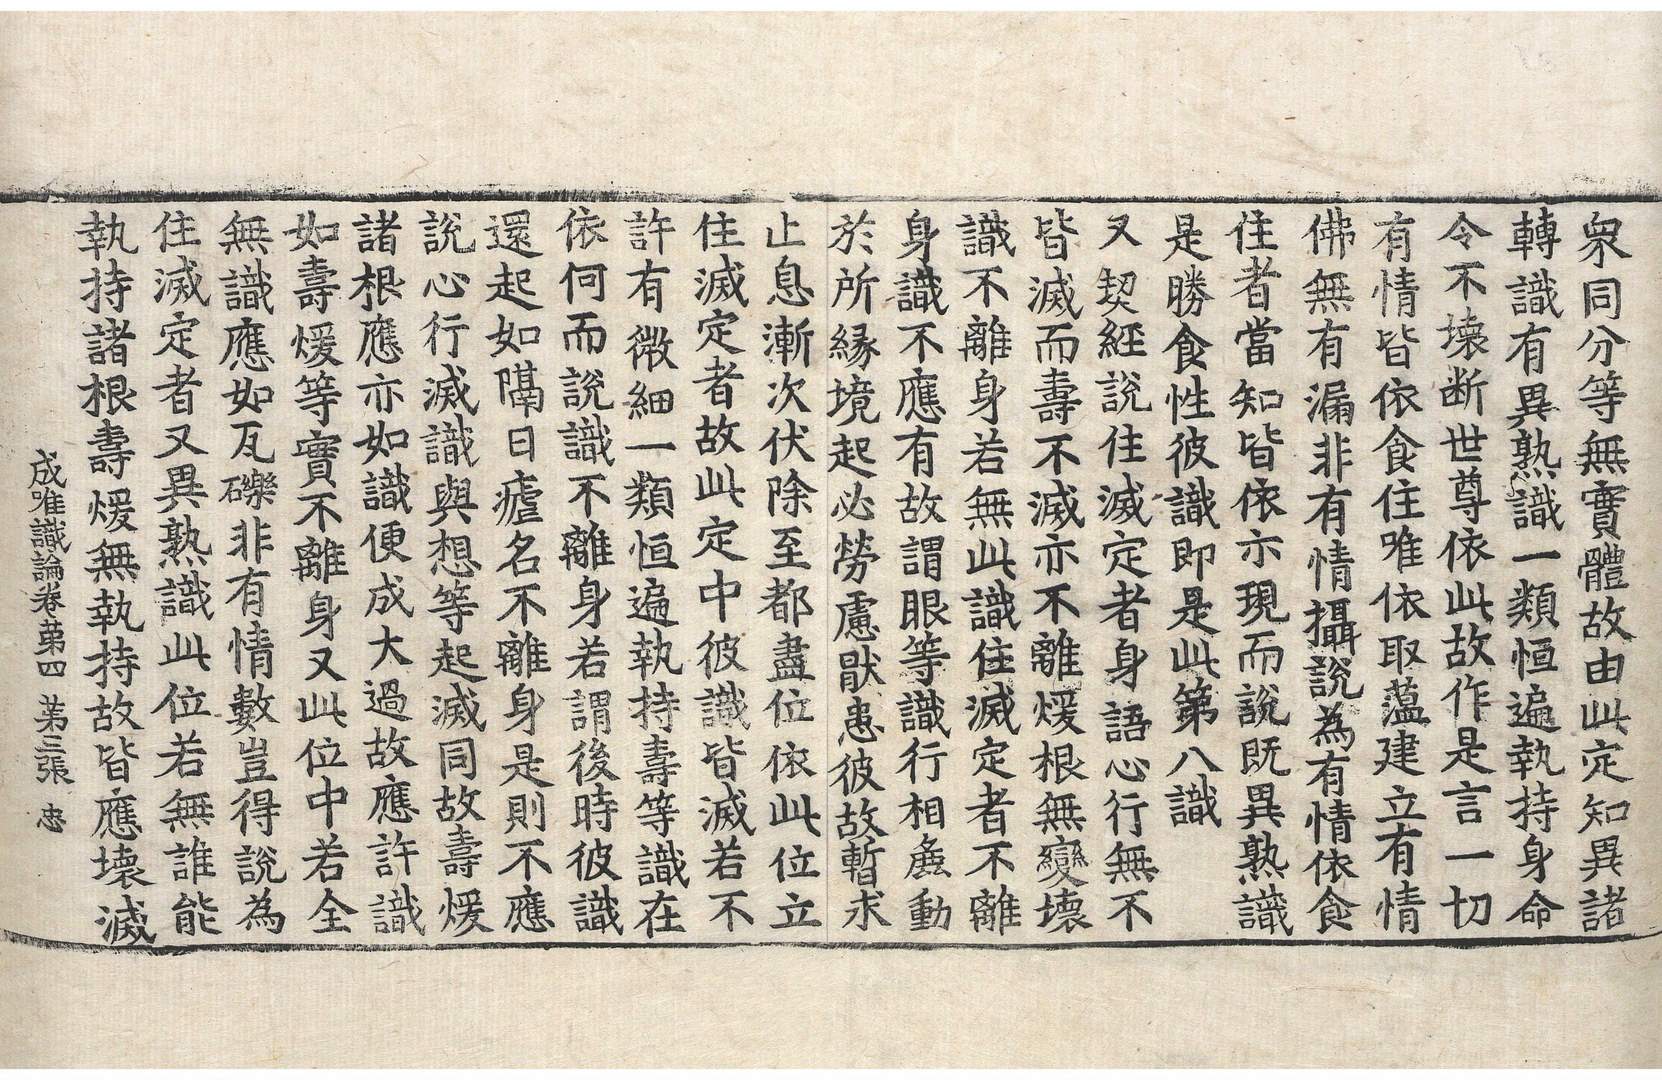 衆同分等無實體故由此定知異諸
轉識有異熟識一類恒遍執持身命
令不壞断世尊依此故作是言一切
有情皆依食住唯依取蘊建立有情
佛無有漏非有情攝說為有情依食
住者當知皆依示現而說既異熟識
是勝食性彼識即是此第八識
又契經說住滅定者身語心行無不
皆滅而壽不滅亦不離煖根無變壞
識不離身若無此識住滅定者不離
身識不應有故謂眼等識行相麁動
於所縁境起必勞慮猒患彼故暫求
止息漸次伏除至都盡位依此位立
住滅定者故此定中彼識皆滅若不
許有微細一類恒遍執持壽等識在
依何而說識不離身若謂後時彼識
還起如隔日瘧名不離身是則不應
說心行滅識與想等起滅同故壽煖
諸根應亦如識便成大過故應許識
如壽煖等實不離身又此位中若全
無識應如瓦礫非有情數豈得說為
住滅定者又異熟識此位若無誰能
執持諸根壽煖無執持故皆應壞滅
成唯識論卷苐四 苐三張 忠